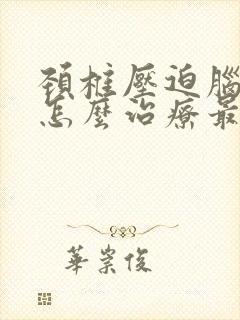 頚椎壓迫腦
怎麼治療最
華崇俊